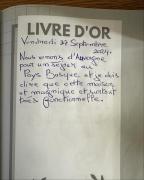 LIVRE D'OR
Vendredi 27 Septembre
2024.
Nous venons d'Auvergne
pour un séjour au
Pays Basque et je dois
dire que cette maison
est magnifique et surtout
très fonctionnelle.